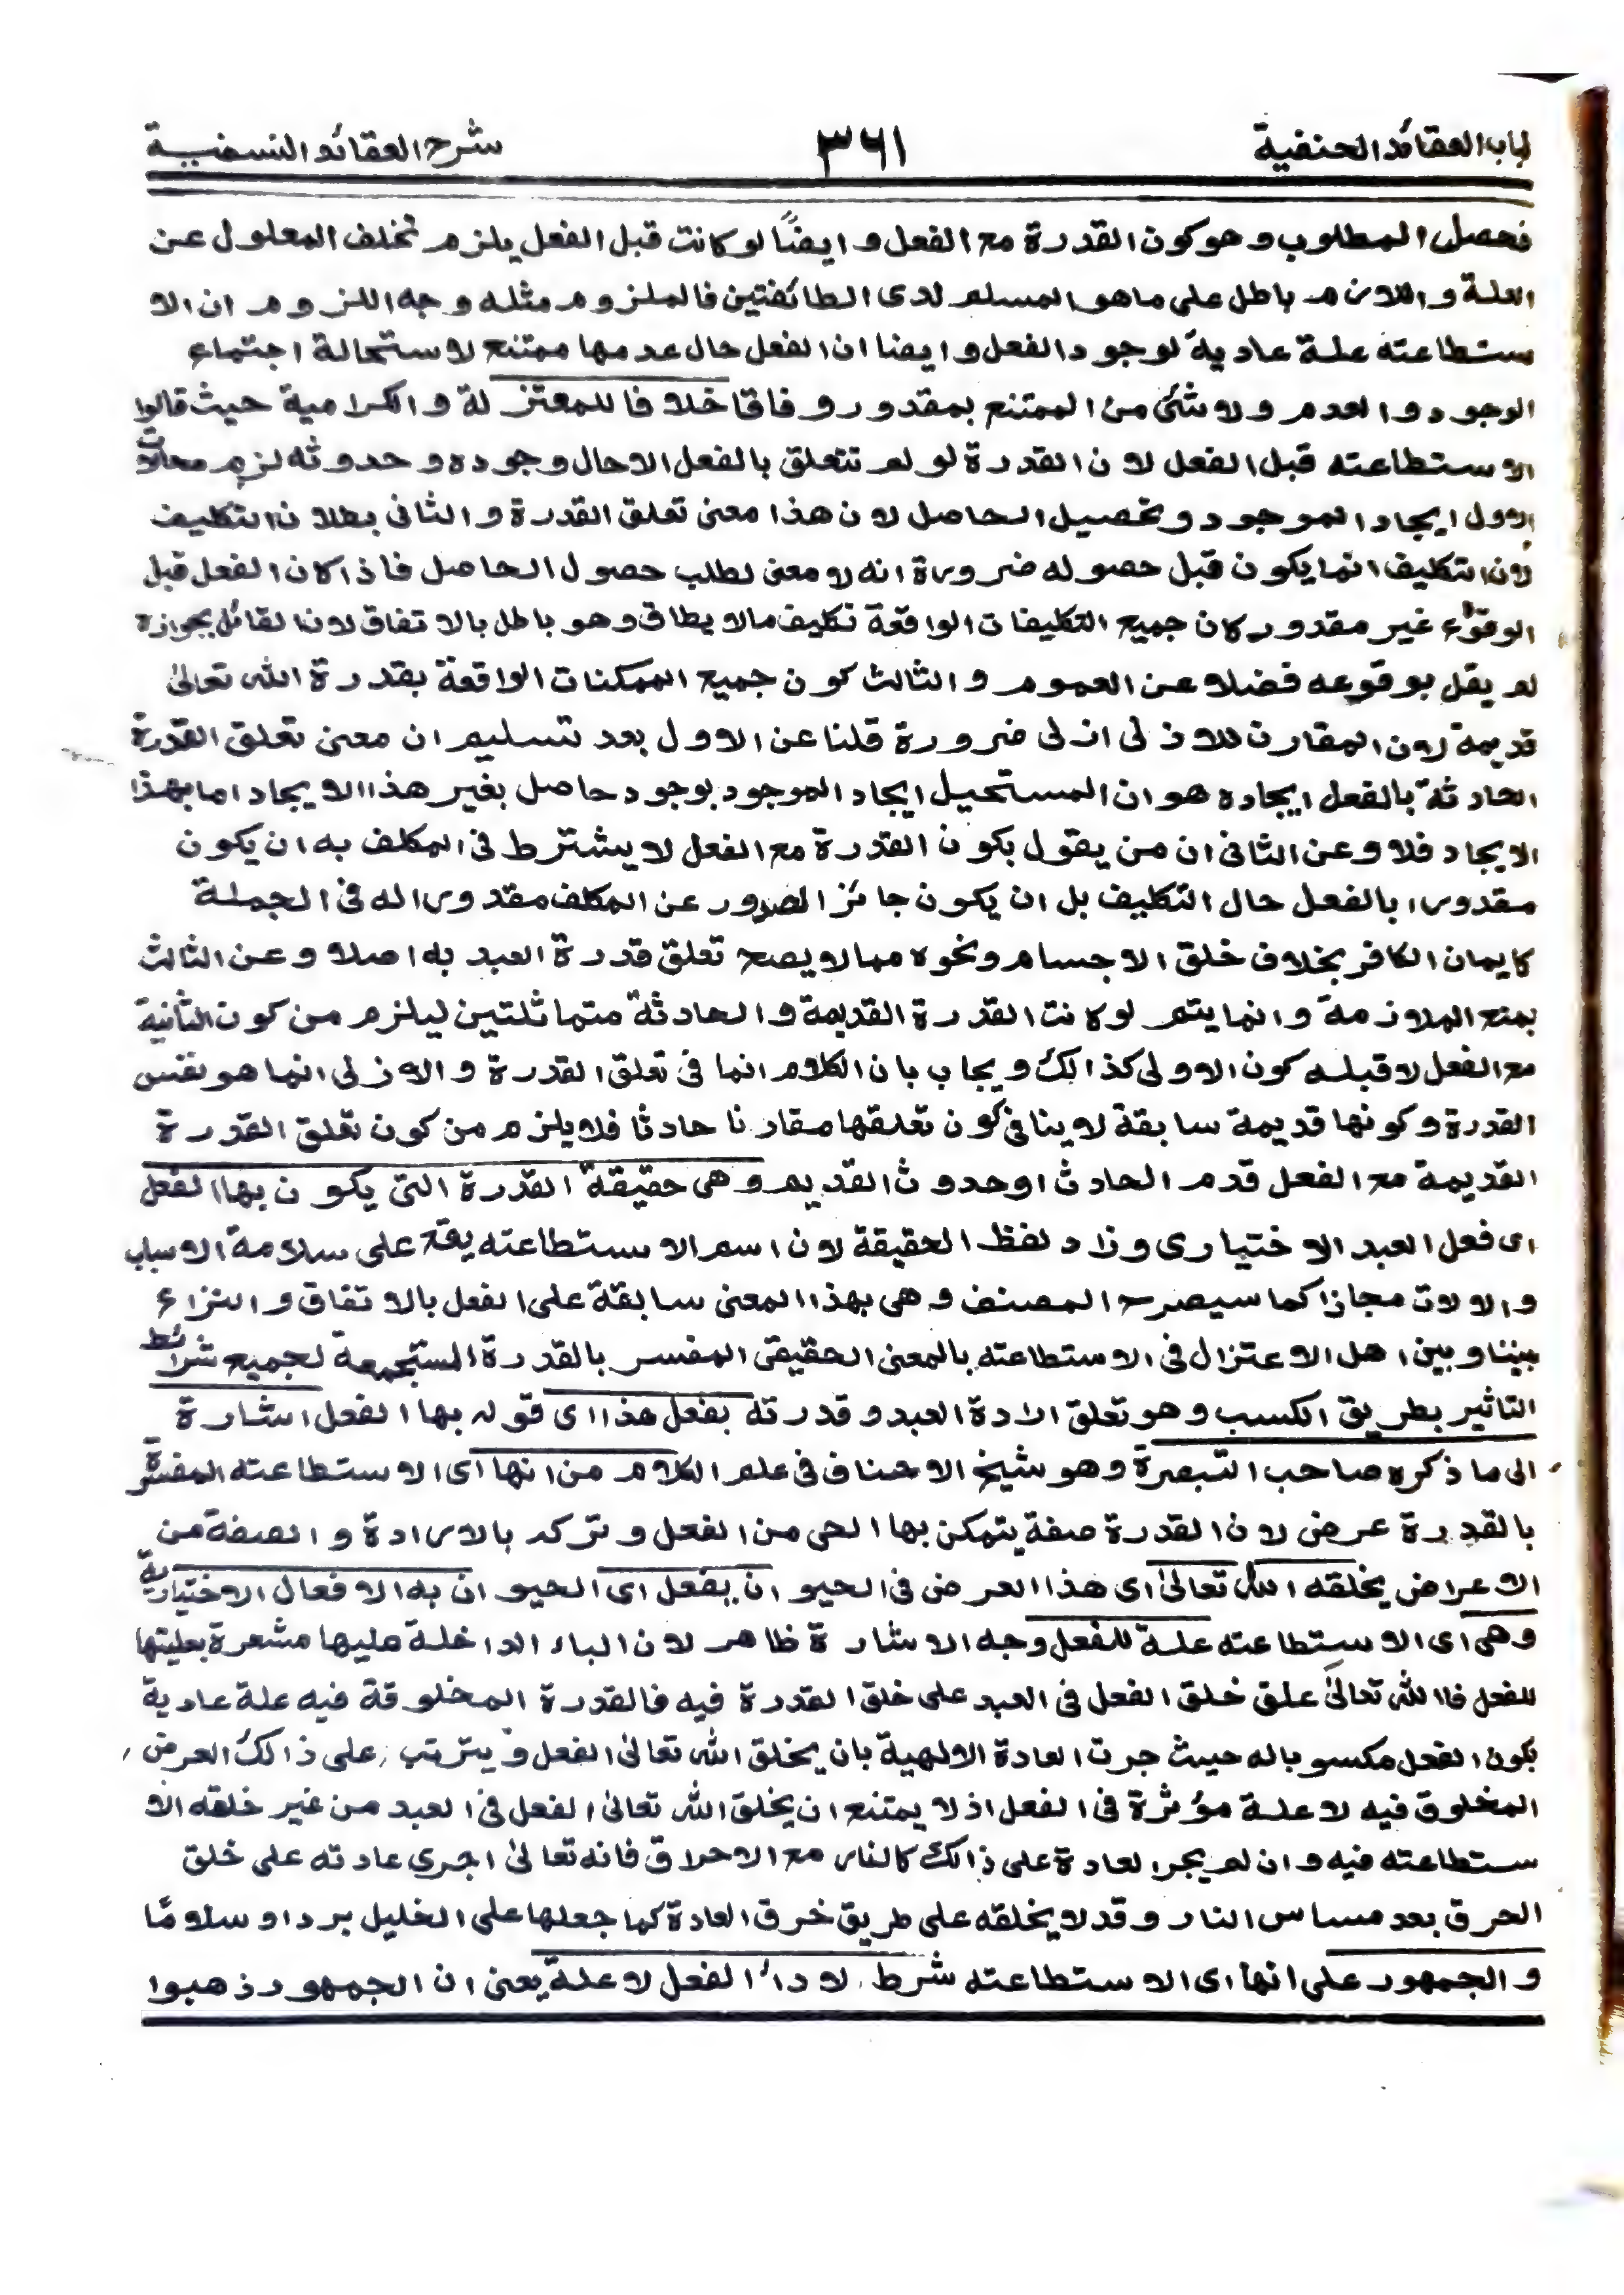 لباب العقائد الحنفية ٣٦١ شرح العقائد النسفية
فحصل المطلوب وهو كون القدرة مع الفعل وايضًا لو كانت قبل الفعل يلزم تخلف المعلول عن
العلة واللازم باطل على ما هو المسلم لدى الطائفتين فالملزوم مثله وجه اللزوم ان الا
ستطاعته علة عادية لوجود الفعل وايضا ان الفعل حال عدمها ممتنع لاستحالة اجتماع
الوجود والعدم ولا شئ من الممتنع بمقدور وفاقا خلافا للمعتزلة والكرامية حيث قالوا
الاستطاعته قبل الفعل لان القدرة لو لم تتعلق بالفعل الا حال وجوده وحدوثه لزم محالات
الاول ايجاد الموجود وتحصيل الحاصل لان هذا معنى تعلق القدرة والثانى بطلان التكليف
لان التكليف انما يكون قبل حصوله ضرورة انه لا معنى لطلب حصول الحاصل فاذا كان الفعل قبل
الوقوع غير مقدور كان جميع التكليفات الواقعة تكليف مالا يطاق وهو باطل بالاتفاق لان القائل بجوازه
لم يقل بوقوعه فضلا عن العموم والثالث كون جميع الممكنات الواقعة بقدرة الله تعالىٰ
قديمة لان المقارن للازلى ازلى ضرورة قلنا عن الاول بعد تسليم ان معنى تعلق القدرة
الحادثة بالفعل ايجاده هو ان المستحيل ايجاد الموجود بوجود حاصل بغير هذا الايجاد اما بهذا
الايجاد فلا وعن الثانى ان من يقول بكون القدرة مع الفعل لا يشترط فى المكلف به ان يكون
مقدورا بالفعل حال التكليف بل ان يكون جائز الصدور عن المكلف مقدورا له فى الجملة
كايمان الكافر بخلاف خلق الاجسام ونحوه مما لا يصح تعلق قدرة العبد به اصلا وعن الثالث
بمنع الملازمة وانما يتم لو كانت القدرة القديمة والحادثة متماثلتين ليلزم من كون الثانية
مع الفعل لا قبله كون الاولى كذالك ويجاب بان الكلام انما فى تعلق القدرة والازلى انما هو نفس
القدرة وكونها قديمة سابقة لا ينافى كون تعلقها مقارنا حادثا فلا يلزم من كون تعلق القدرة
القديمة مع الفعل قدم الحادث او حدوث القديم وهى حقيقة القدرة التى يكون بها الفعل
اى فعل العبد الاختيارى وزاد لفظ الحقيقة لان اسم الاستطاعته يقع على سلامة الاسباب
والالات مجازا كما سيصرح المصنف وهى بهذا المعنى سابقة على الفعل بالاتفاق والنزاع
بيننا وبين اهل الاعتزال فى الاستطاعته بالمعنى الحقيقى المفسر بالقدرة المستجمعة لجميع شرائط
التاثير بطريق الكسب وهو تعلق ارادة العبد وقدرته بفعل هذا اى قوله بها الفعل اشارة
الى ما ذكره صاحب التبصرة وهو شيخ الاحناف فى علم الكلام من انها اى الاستطاعته المفسرة
بالقدرة عرض لان القدرة صفة يتمكن بها الحى من الفعل وتركه بالارادة والصفة من
الاعراض يخلقه الله تعالىٰ اى هذا العرض فى الحيوان يفعل اى الحيوان به الافعال الاختيارية
وهى اى الاستطاعته علة للفعل وجه الاشارة ظاهر لان الباء الداخلة عليها مشعرة بعليتها
للفعل فالله تعالىٰ علق خلق الفعل فى العبد على خلق القدرة فيه فالقدرة المخلوقة فيه علة عادية
بكون الفعل مكسوبا له حيث جرت العادة الالهية بان يخلق الله تعالىٰ الفعل ويترتب على ذالك العرض
المخلوق فيه لا علة مؤثرة فى الفعل اذ لا يمتنع ان يخلق الله تعالىٰ الفعل فى العبد من غير خلقه الا
ستطاعته فيه وان لم يجر العادة على ذالك كالنار مع الاحراق فانه تعالىٰ اجرى عادته على خلق
الحرق بعد مساس النار وقد لا يخلقه على طريق خرق العادة كما جعلها على الخليل بردا وسلامًا
والجمهور على انها اى الاستطاعته شرط لاداء الفعل لا علة يعنى ان الجمهور ذهبوا